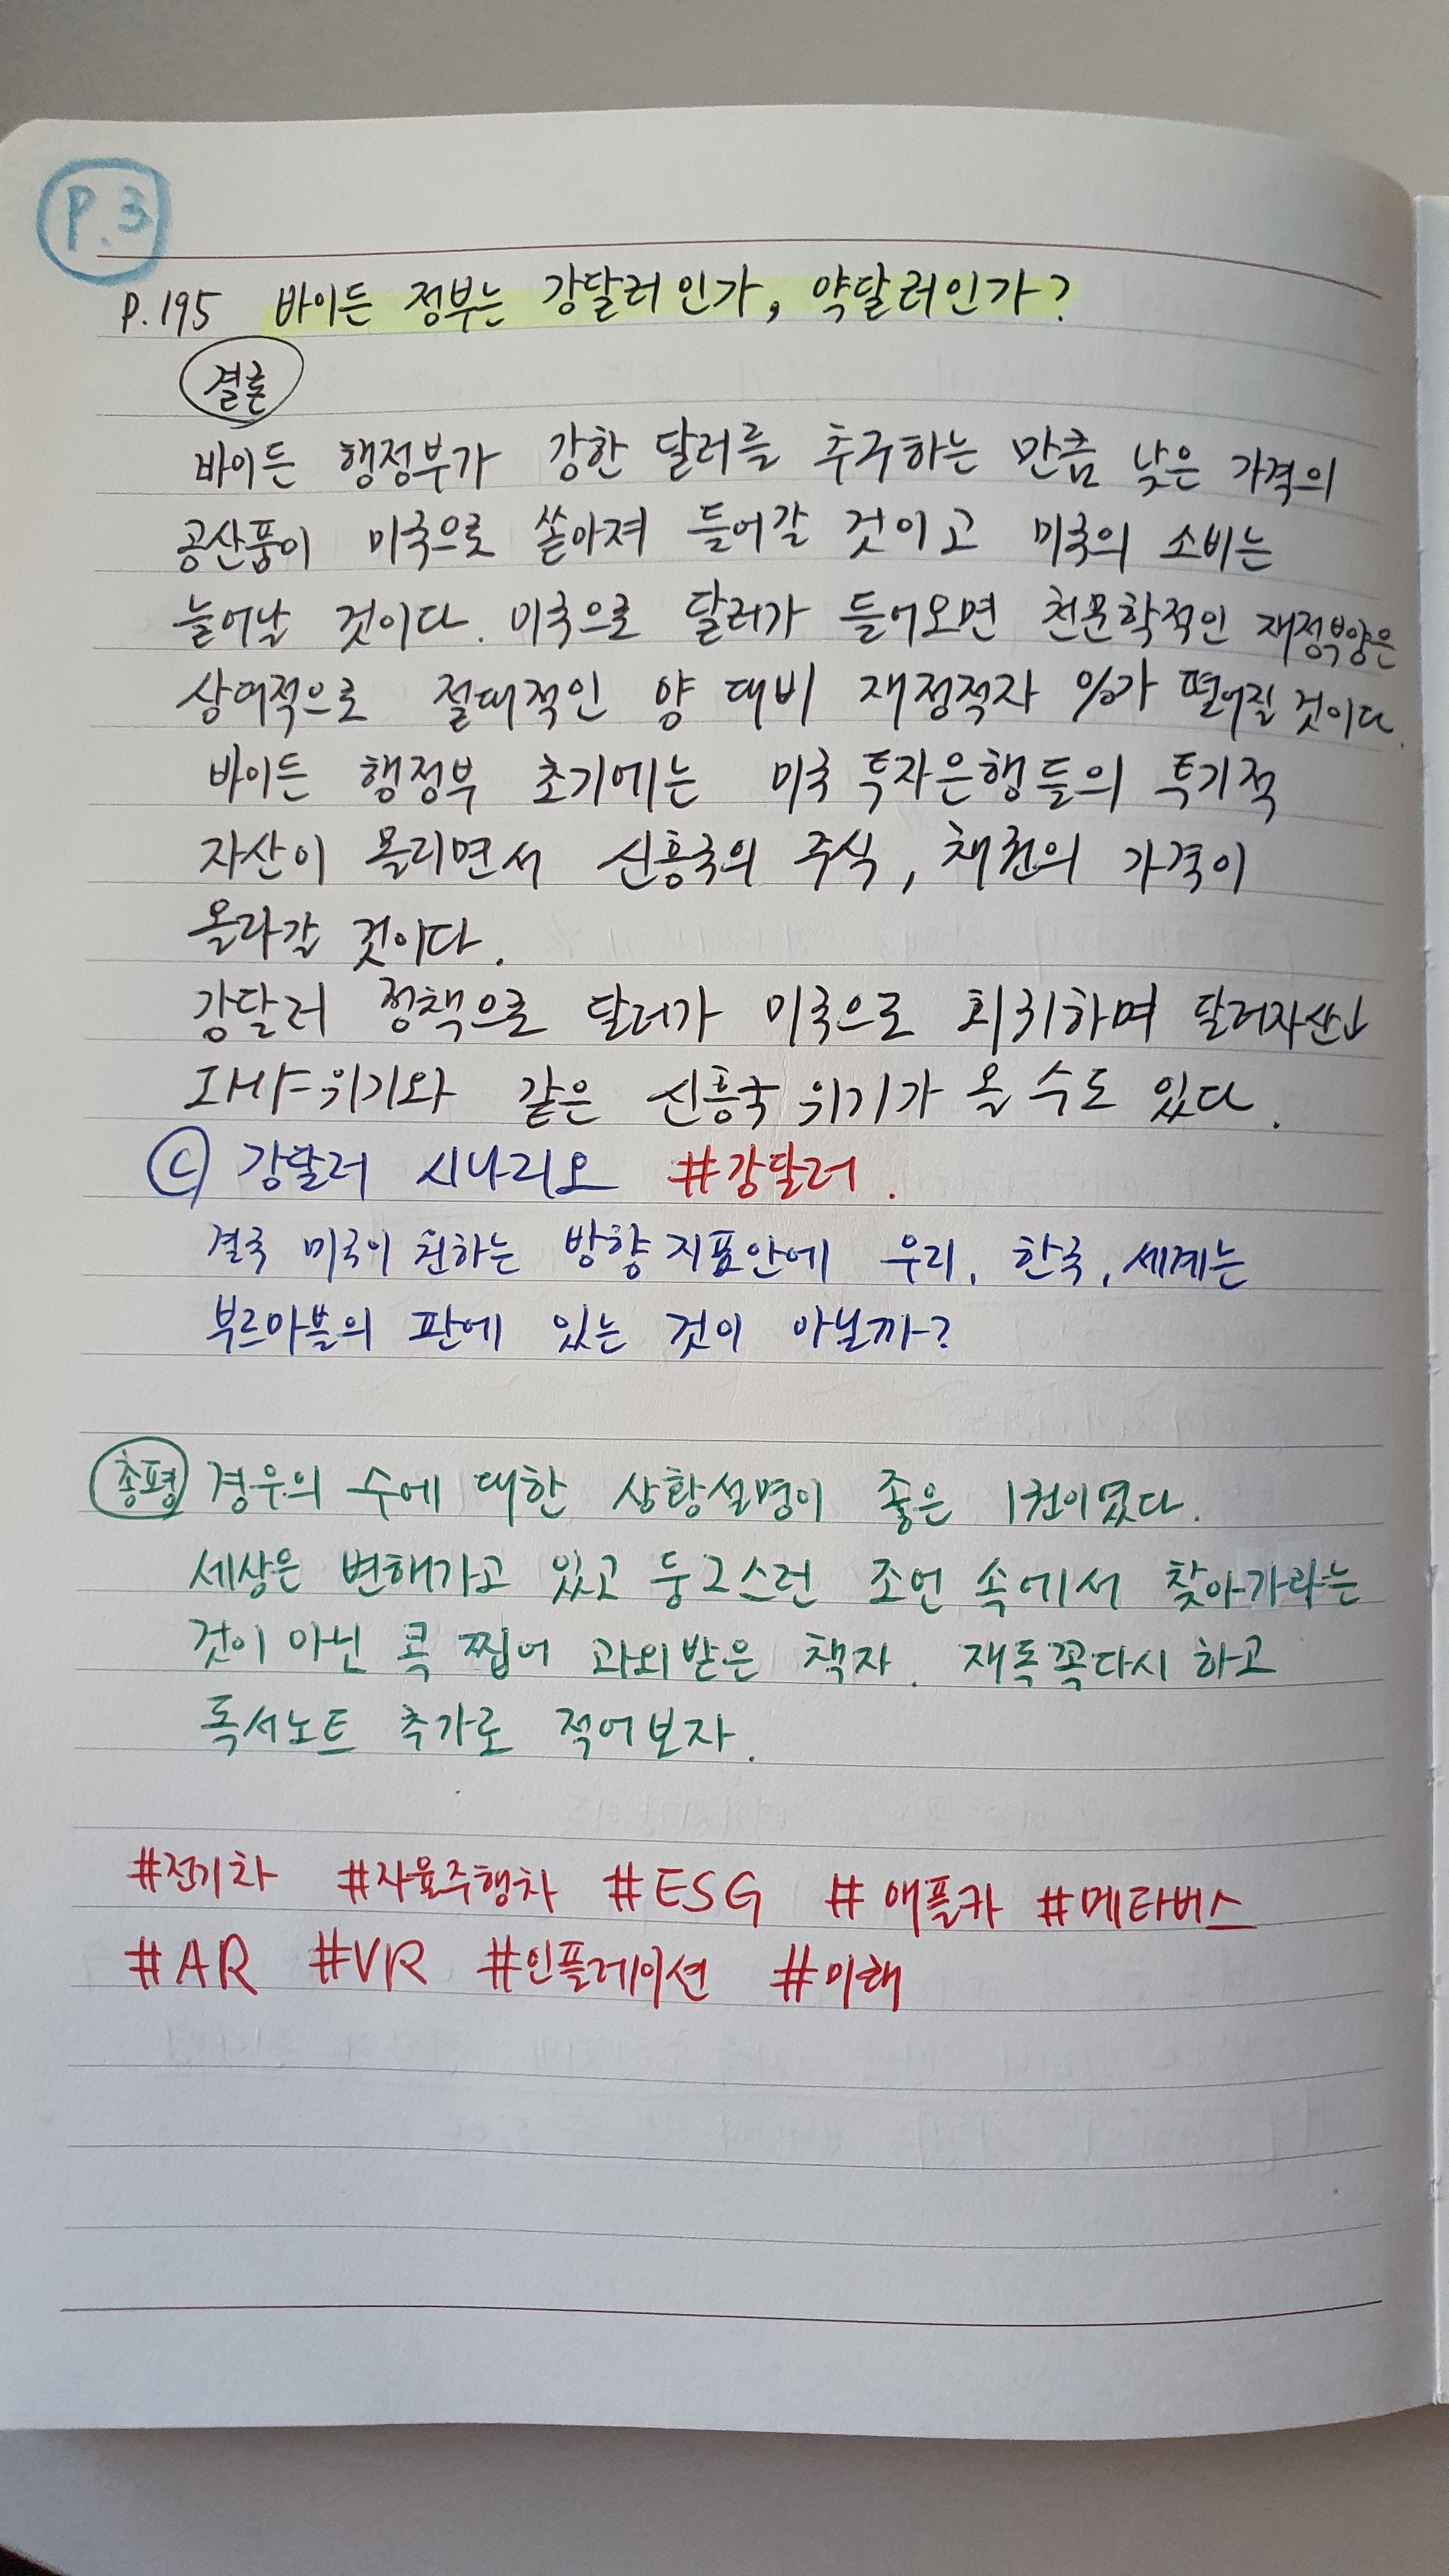 P.3
P.195 바이든 정부는 강달러인가, 약달러인가?
결론
바이든 행정부가 강한 달러를 추구하는 만큼 낮은 가격의
공산품이 미국으로 쏟아져 들어갈 것이고 미국의 소비는
늘어날 것이다. 미국으로 달러가 들어오면 천문학적인 재정부양은
상대적으로 절대적인 양 대비 재정적자 %가 떨어질 것이다.
바이든 행정부 초기에는 미국 투자은행들의 투기적
자산이 몰리면서 신흥국의 주식, 채권의 가격이
올라갈 것이다.
강달러 정책으로 달러가 미국으로 회귀하며 달러자산↓
IMF위기와 같은 신흥국 위기가 올 수도 있다.
ⓒ 강달러 시나리오 #강달러.
결국 미국이 원하는 방향 지표안에 우리, 한국, 세계는
부르마블의 판에 있는 것이 아닐까?
총평 경우의 수에 대한 상황설명이 좋은 1권이였다.
세상은 변해가고 있고 둥그스런 조언 속에서 찾아가라는
것이 아닌 콕 찝어 과외받은 책자. 재독꼭다시 하고
독서노트 추가로 적어보자.
#전기차 #자율주행차 #ESG #애플카 #메타버스
#AR #VR #인플레이션 #이해